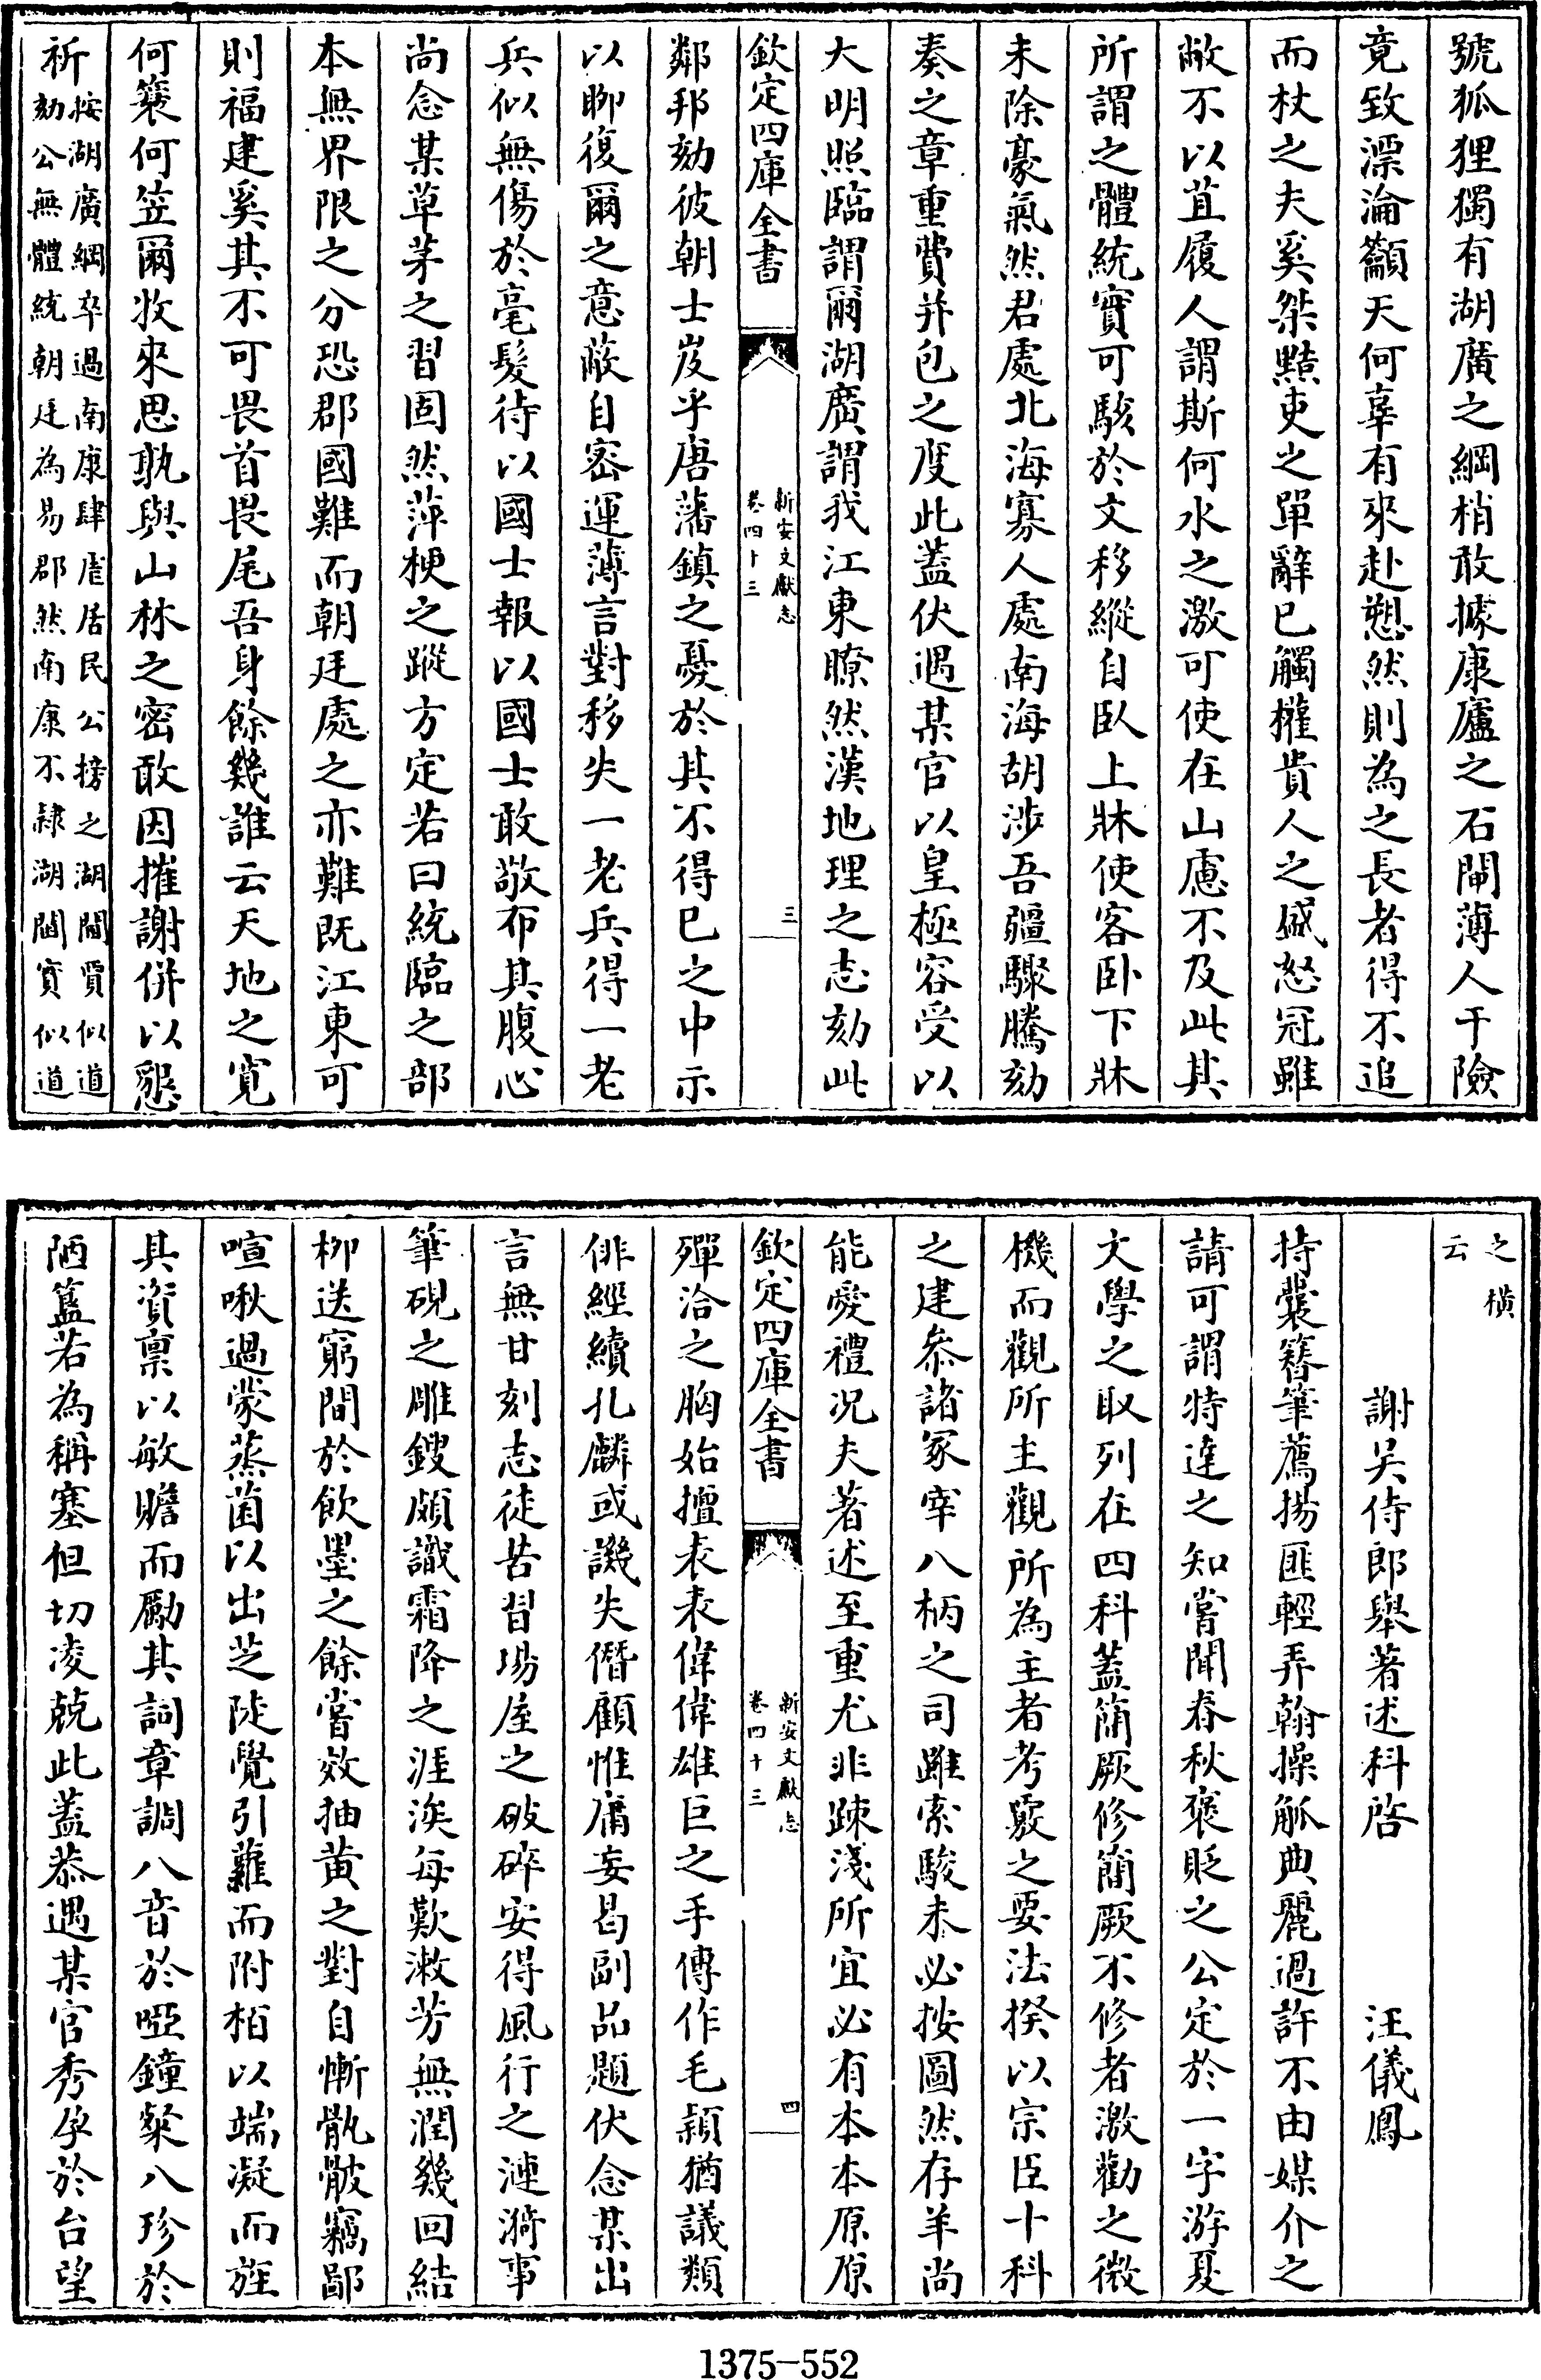 號狐狸獨有湖廣之綱梢敢據康廬之石閘薄人于險
竟致漂淪籲天何辜有來赴愬然則為之長者得不追
而杖之夫奚桀黠吏之單辭已觸權貴人之盛怒冠雖
敝不以苴履人謂斯何水之激可使在山慮不及此其
所謂之體統實可駭於文移縱自臥上牀使客卧下牀
未除豪氣然君處北海寡人處南海胡涉吾疆驟騰劾
奏之章重費并包之度此蓋伏遇某官以皇極容受以
大明照臨謂爾湖廣謂我江東瞭然漢地理之志劾此
欽定四庫全書
新安文獻志
卷四十三
三
鄰邦劾彼朝士岌乎唐藩鎮之憂於其不得已之中示
以聊復爾之意蔽自宻運薄言對移失一老兵得一老
兵似無傷於毫髮待以國士報以國士敢敬布其腹心
尚念某草茅之習固然萍梗之蹤方定若曰統臨之部
本無界限之分恐郡國難而朝廷處之亦難既江東可
則福建奚其不可畏首畏尾吾身餘幾誰云天地之寛
何簑何笠爾牧來思孰與山林之密敢因摧謝併以懇
祈
按湖廣綱卒過南康肆虐居民公榜之湖閫賈似道
劾公無體統朝廷為易郡然南康不隷湖閫實似道
之橫
云
謝吳侍郎舉著述科啓 汪儀鳳
持囊簪筆薦揚匪輕弄翰操觚典麗過許不由媒介之
請可謂特達之知嘗聞春秋褒貶之公定於一字游夏
文學之取列在四科蓋簡厥修簡厥不修者激勸之微
機而觀所主觀所為主者考覈之要法揆以宗臣十科
之建叅諸冢宰八柄之司雖索駿未必按圖然存羊尚
能愛禮况夫著述至重尤非踈淺所宜必有本本原原
欽定四庫全書
新安文獻志
卷四十三
四
殫洽之胸始擅表表偉偉雄巨之手傳作毛穎猶議類
俳經續孔麟或譏失僭顧惟庸妄曷副品題伏念某出
言無甘刻志徒苦習塲屋之破碎安得風行之漣漪事
筆硯之雕鎪頗識霜降之涯涘每歎漱芳無潤幾回結
柳送窮間於飲墨之餘嘗效抽黄之對自慚骫骳竊鄙
喧啾過蒙蒸菌以出芝陡覺引蘿而附栢以端凝而旌
其資禀以敏贍而勵其詞章調八音於啞鐘粲八珍於
陋簋若為稱塞但切凌兢此蓋恭遇某官秀孕於台望
1375-552